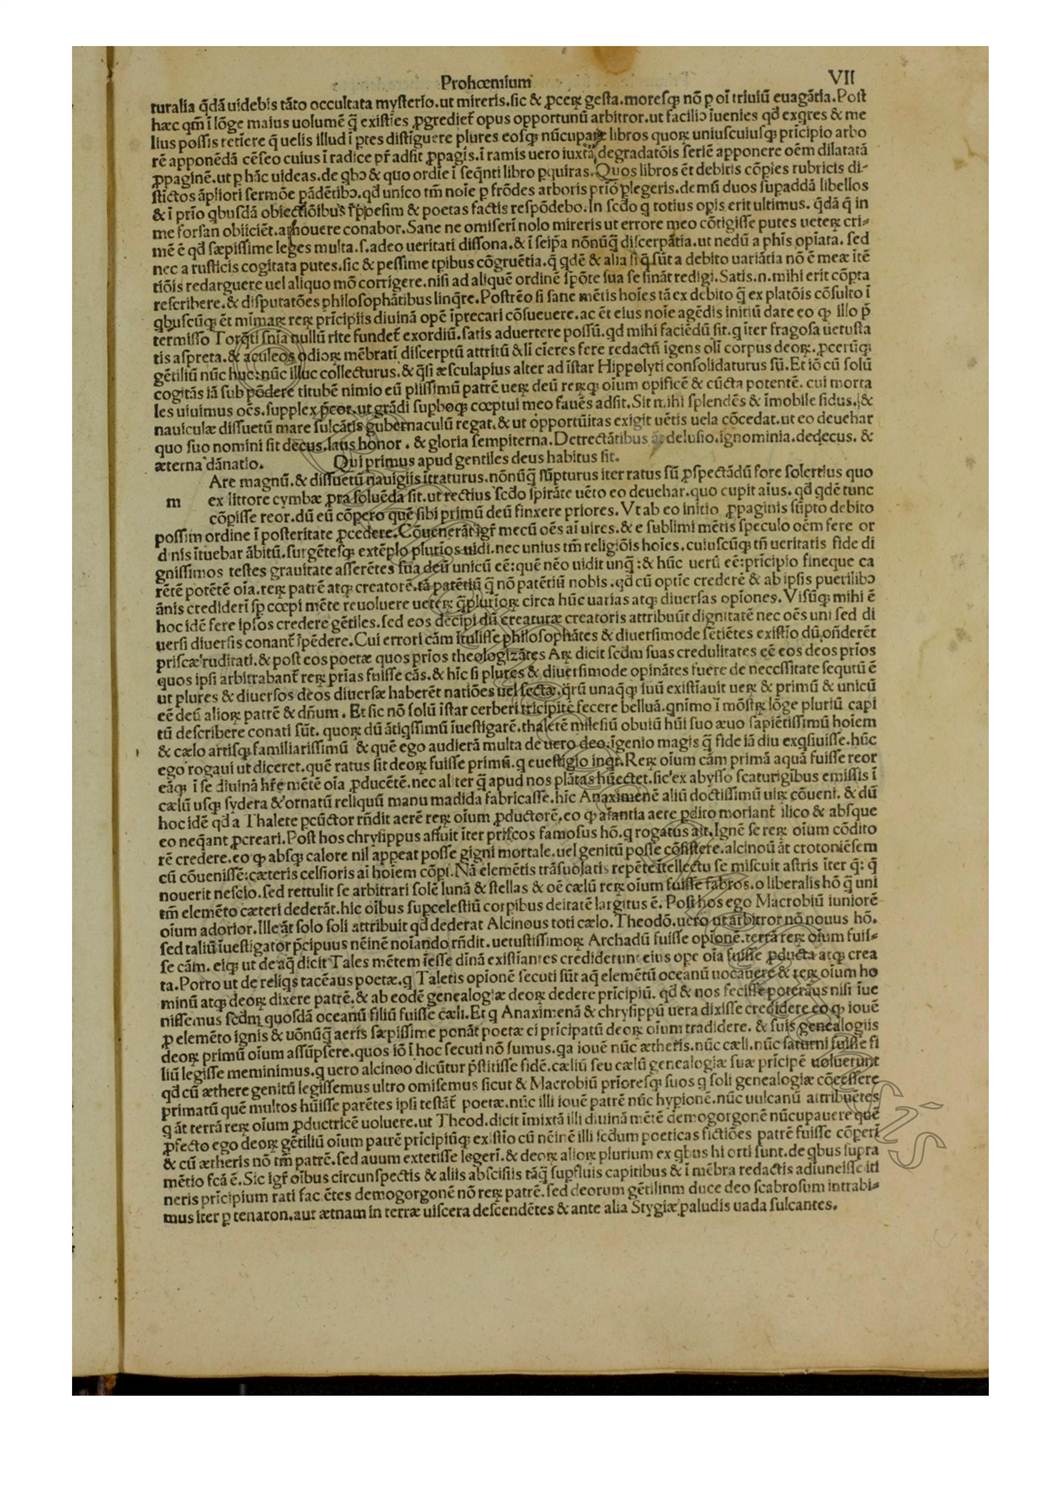 Prohœmium VII
turalia q̄dā uidebis tāto occultata mysterio.ut mireris.sic & ꝓceꝝ gesta.moresqꝫ nō p oī triuiū euagātia.Post
hæc qm̄ ī lōge maius uolumē q̄ existies ꝓgrediet̄ opus opportunū arbitror.ut facilio iuenies qd̄ exqres & me
lius possis retiere q̄ uelis illud ī ptes distiguere plures eosqꝫ nūcupare libros quoꝝ uniuscuiusqꝫ pricipio arbo
rē apponēdā cēseo cuius ī radice pr̄ adsit ꝓpagis.ī ramis uero iuxta degradatōis seriē apponere oēm dilatatā
ꝓpaginē.ut p hāc uideas.de qbꝰ & quo ordie ī seqnti libro pquiras.Quos libros ēt debitis cōpies rubricis di-
stictos āpliori sermōe pādētibꝰ.qd̄ unico tm̄ noie p frōdes arboris prio plegeris.demū duos supaddā libellos
& ī prīo qbusdā obiectiōibus ī ꝑpesim & poetas factis respōdebo.In scdo q totius opis erit ultimus. q̄dā q̄ in
me forsan obiiciēt.amouere conabor.Sane ne omiserī nolo mireris ut errore meo cōtigisse putes ueteꝝ cri-
mē ē qd̄ sæpissime leges multa.s.adeo ueritati dissona.& ī seipā nōnūq̄ discerpātia.ut nedū a phis opiata. sed
nec a rusticis cogitata putes.sic & pessime tpibus cōgruētia.q̄ qdē & alia siq̄ sūt a debito uariātia nō ē meæ itē
tiōis redarguere uel aliquo mō corrigere.nisi ad aliquē ordinē spōte sua se sināt redigi.Satis.n.mihi erit cōpta
rescribere.& disputatōes philosophātibus linqre.Postrēo si sane mētis hoies tā ex debito q̄ ex platōis cōsulto ī
qbuscūqꝫ ēt mimaꝝ reꝝ prīcipiis diuinā opē īprecari cōsueuere.ac ēt eius noie agēdis initiū dare eo qꝫ illo p̄
termisso Torqti snia nullū rite fundet̄ exordiū.satis aduertere possū.qd mihi faciēdū sit.q iter fragosa uetusta
tis aspreta.& aculeos odioꝝ mēbratī discerptū attritū & lī cīeres fere redactū īgens olī corpus deoꝝ.ꝓcerūqꝫ
gētiliū nūc huc:nūc illuc collecturus.& q̄si æsculapius alter ad īstar Hippolyti consolidaturus sū.Et iō cū solū
cogitās iā sub pōdere titubē nimio eū piissimū patrē ueꝝ deū reꝝqꝫ oium opificē & cūcta potentē. cui morta
les uiuimus oēs.supplex pcor.ut grādi supboqꝫ cœptui meo fauēs adsit.Sit n.ihi splendēs & īmobile sidus.& 
nauiculæ dissuetū mare sulcātis gubernaculū regat.& ut opportūitas exigit uētis uela cōcedat.ut eo deuehar
quo suo nomini sit decus.laus honor . & gloria sempiterna.Detrectātibus āt delusio.ignominia.dedecus. &
æterna dānatio. Qui primus apud gentiles deus habitus sit.
Are magnū.& dissuetū nauigiis ītraturus.nōnūq̄ sūpturus iter ratus sū ꝓspectādū fore solertius quo
m ex littore cymbæ pra soluēda sit.ut rectius scdo spirāte uēto eo deuehar.quo cupit aīus. qd qdē tunc
cōpisse reor.dū eū cōpero quē sibi primū deū finxere priores. Vt ab eo initio ꝓpaginis sūpto debito
possim ordine ī posteritate ꝓcedere.Cōuenerāt īgr̄ mecū oēs aī uires.& e sublimi mētis speculo oēm fere or
dinis ītuebar ābitū.surgētesqꝫ extēplo plurīos uidi.nec unius tm̄ religiōis hoīes.cuiuscūqꝫ tn̄ ueritatis fide di
gnissimos testes grauitate asserētes sua deū unicū eē:quē nēo uidit unq̄ :& hūc uerū eē:pricipio fineque ca
rētē potētē oīa.reꝝ patrē atqꝫ creatorē.tā patētiū q̄ nō patētiū nobis .qd cū optie crederē & ab ipsis puerilibꝰ
ānis crediderī sp cœpi mēte reuoluere ueteꝝ q̄plurioꝝ circa hūc uarias atqꝫ diuersas opiones. Visūqꝫ mihi ē
hoc idē fere ipsos credere gētiles.sed eos decipi dū creaturæ creatoris attribuūt dignitatē nec oēs uni sed di
uersi diuersis conant̄ īpēdere.Cui errori cām ītulisse philosophātes & diuersimode sētiētes existīo dū onderēt
priscæ ruditati.& post eos poetæ quos prios theologizātes Ar. dicit scdm suas credulitates eē eos deos prios
quos ipsi arbitrabant̄ reꝝ prias fuisse cās.& hīc si plures & diuersimode opinātes fuere de neccssitate sequtū ē
ut plures & diuersos deos diuersæ haberēt natiōes uel sectæ.qrū unaq̄qꝫ suū existīauit ueꝝ & primū & unicū
eē deū alioꝝ patrē & dn̄um . Et sic nō solū īstar cerberi tricipitē fecere belluā.qnimo ī mōstꝝ lōge pluriū capi
tū describere conati sūt. quoꝝ dū ātiqssimū īuestigarē.thaletē milesiū obuiū hūi suo æuo sapiētissimū hoiem
& cælo artisqꝫ familiarissimū & quē ego audierā multa de uero deo.īgenio magis q̄ fide iā diu exqsiuisse.hūc
ego rogaui ut diceret.quē ratus sit deoꝝ fuisse primū.q euestigio inqt.Reꝝ oium cām primā aquā fuisse reor
eāqꝫ ī se diuinā hr̄e mētē oīa ꝓducētē.nec aliter q̄ apud nos plātas hūectet.sic ex abysso scaturigibus emissis ī
cælū usqꝫ sydera & ornatū reliquū manu madida fabricasse.hīc Anaximenē aliū doctissimū uiꝝ cōueni. & dū
hoc idē qd a Thalete pcūctor rn̄dit aerē reꝝ oium ꝓductorē,eo qꝫ aīantia aere pdito moriant̄ ilico & absque
eo neqant ꝓcreari.Post hos chrysippus affuit iter priscos famosus hō.q rogatus ait.Ignē se reꝝ oium cōdito
rē credere.eo qꝫ absqꝫ calore nil appeat posse gigni mortale.uel genitū posse cōsistere.alcinoū āt crotoniēsem
cū cōuenisse:cæteris celsioris aī hoiem cōpi.Nā elemētis trāsuolatis repēte ītellectu se miscuit astris īter q: q̄
nouerit nescio.sed rettulit se arbitrari solē lunā & stellas & oē cælū reꝝ oium fuisse fabros.o liberalis hō q̄ uni
tm̄ elemēto cæteri dederāt.hic oībus supcelestiū corpibus deitatē largitus ē. Post hos ego Macrobiū iuniorē
oium adorior.Ille āt solo soli attribuit qd dederat Alcinous toti cælo.Theodō.uero ut arbitror nō nouus hō.
sed taliū īuestigator pr̄cipuus nēinē noiando rn̄dit.uetustissimoꝝ Archadū fuisse opionē.terrā reꝝ oium fuis-
se cām. eiqꝫ ut de aq̄ dicit Tales mētem īesse dīnā existiantes crediderunt eius ope oīa fuisse ꝓducta atqꝫ crea
ta.Porro ut de reliqs tacēaus poetæ.q Taletis opionē secuti sūt aq̄ elemētū oceanū uocauere & reꝝ oium ho
minū atqꝫ deoꝝ dixere patrē.& ab eodē genealogiæ deoꝝ dedere prīcipiū. qd & nos fecisse poterāus nisi īue
nissemus scdm quosdā oceanū filiū fuisse cæli.Et q Anaximenā & chrysippū uera dixisse credidere eo qꝫ iouē
p elemēto ignis & uōnūq̄ aeris sæpissime ponāt poetæ ei prīcipatū deoꝝ oium tradidere. & suis genealogiis
deoꝝ primū oium assūpsere.quos iō ī hoc secuti nō sumus.qa iouē nūc ætheris.nūc cæli.nūc saturni fuisse fi
liū legisse meminimus.q uero alcinoo dicūtur p̄stitisse fidē.cæliū seu cælū genealogiæ suæ principē uoluerunt
qd cū æthere genitū legissemus ultro omisemus sicut & Macrobiū prioresqꝫ suos q soli genealogiæ cōcessere
primatū quē multos hūisse parētes ipsi testāt̄ poetæ.nūc illi iouē patrē nūc hypionē.nūc uulcanū attribuētes
q āt terrā reꝝ oium ꝓductricē uoluere.ut Theod.dicit īmixtā illi diuinā mētē demogorgonē nūcupauere quē
ꝓfecto ego deoꝝ gētiliū oium patrē pricipiūqꝫ existīo cū nēinē illi scdum poeticas fictiōes patrē fuisse cōperī
& cū ætheris nō tm̄ patrē.sed auum extetisse legerī.& deoꝝ alioꝝ plurium ex qbus hi orti sunt.de qbus supra
mētio fcā ē.Sic īgr̄ oībus circunspectis & aliis abscissis tāq̄ supfluis capitibus & ī mēbra redactis adiuneisse iti
neris prīcipium rati fac ētes demogorgonē nō reꝝ patrē.sed deorum gētilinm duce deo scabrosum intrabi-
mus iter p tenaron.aut ætnam in terræ uiscera descendētes & ante alia Stygiæ paludis uada sulcantes.